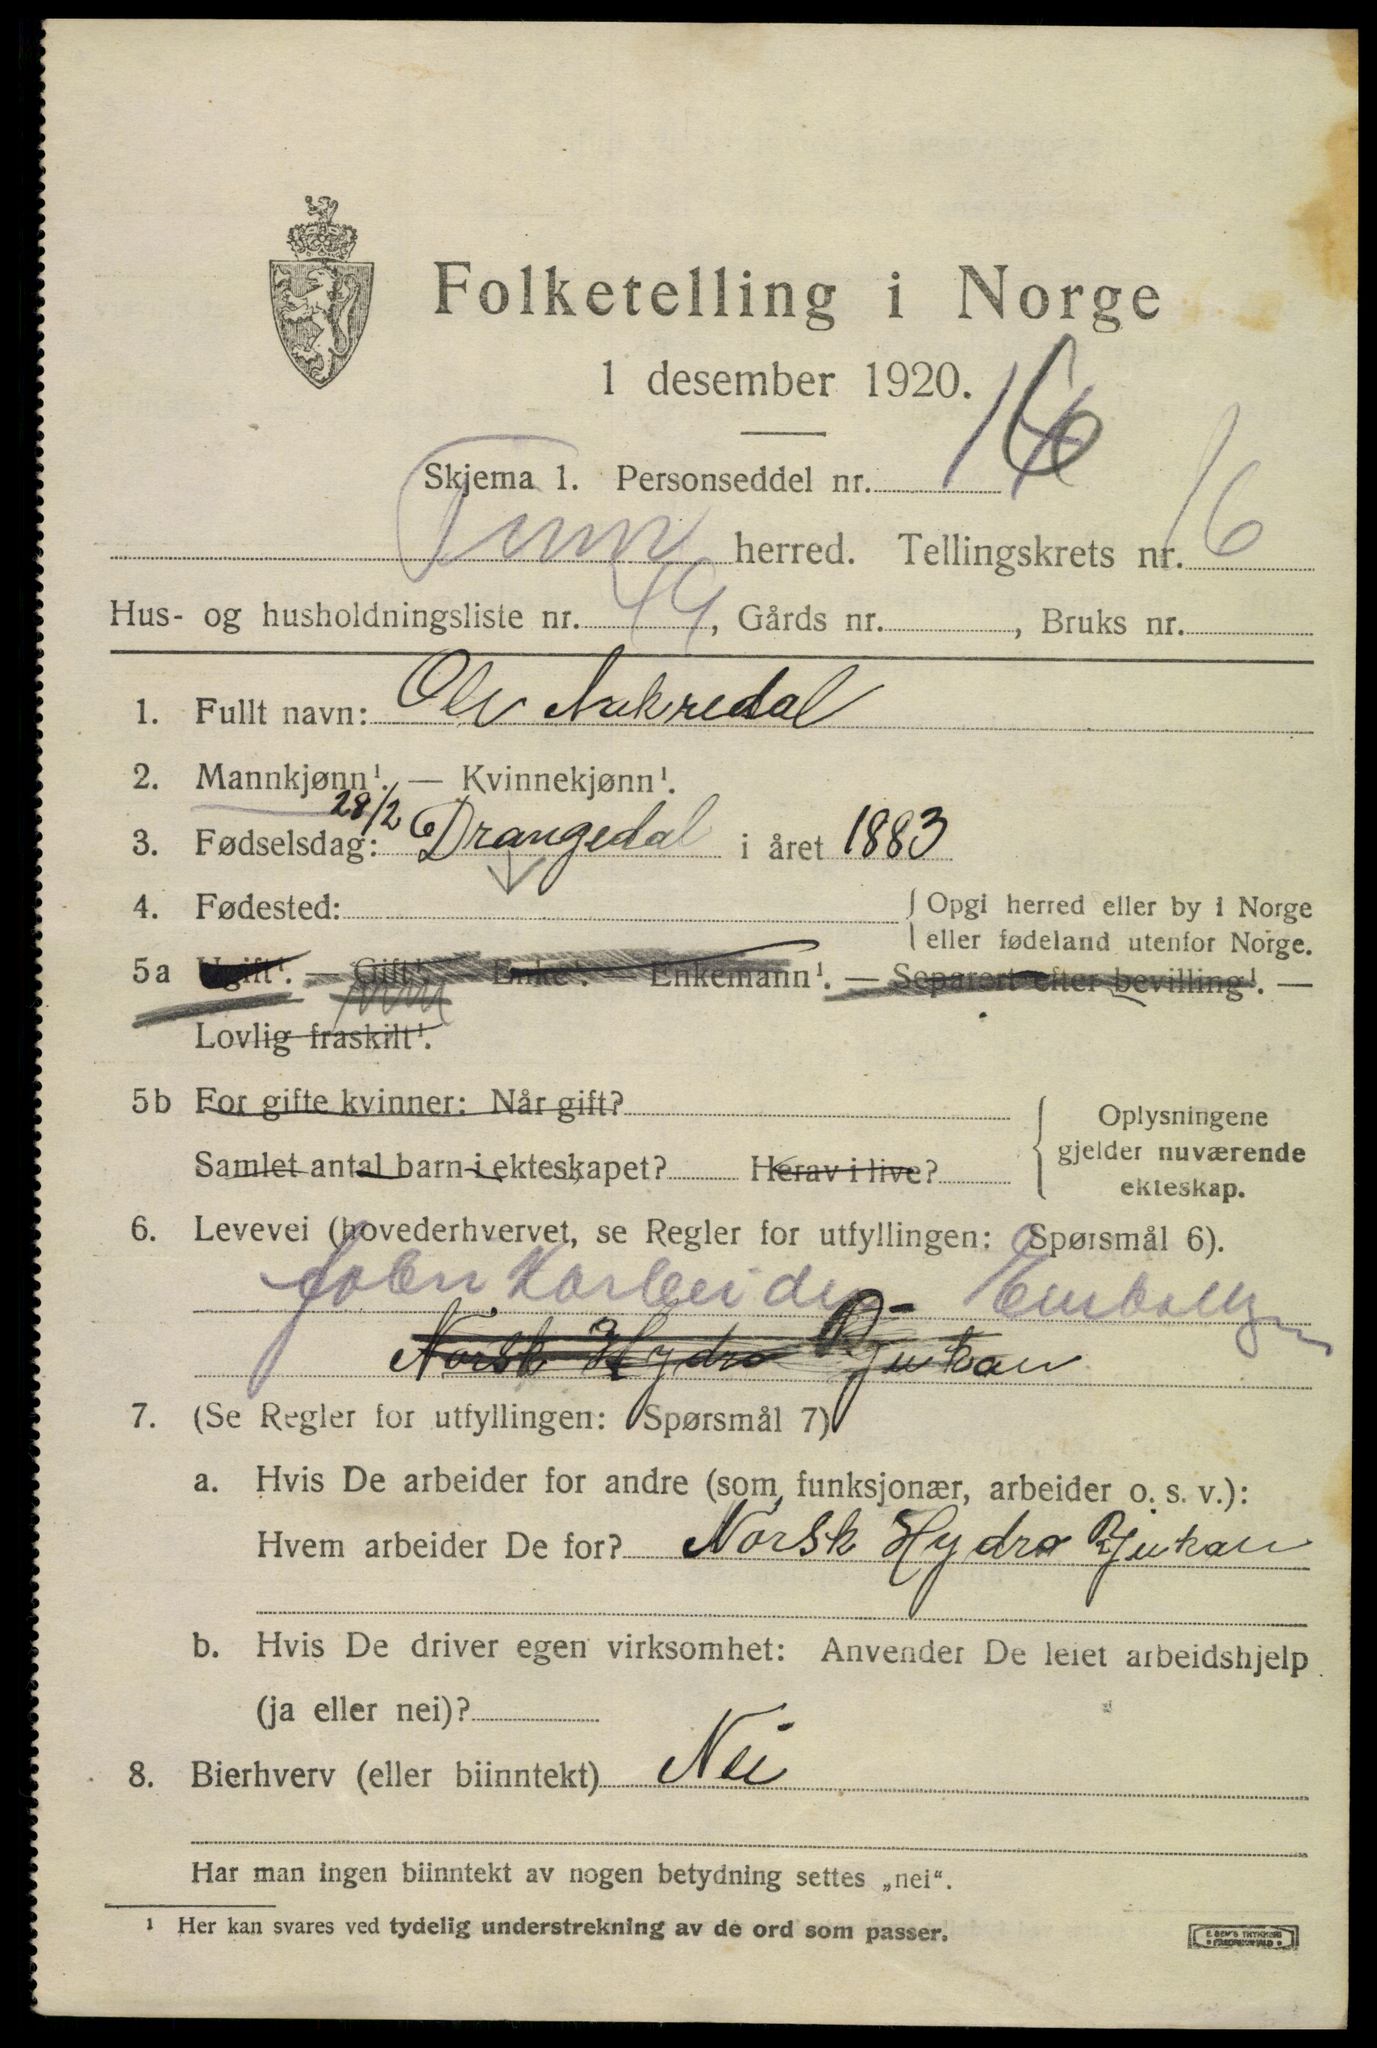 Folketelling i Norge
1 desember 1920.
Skjema 1. Personseddel nr. 16
Tinn herred. Tellingskrets nr. 16
Hus- og husholdningsliste nr. 49, Gårds nr. , Bruks nr.
1. Fullt navn: Ole Aakredal
2. Mannkjønn¹. — Kvinnekjønn¹.
3. Fødselsdag: 28/2 Drangedal i året 1883
4. Fødested: Opgi herred eller by i Norge
eller fødeland utenfor Norge.
5a Ugift¹. — Gift¹. — Enke¹. — Enkemann¹. — Separert efter bevilling¹. —
Lovlig fraskilt¹.
5b For gifte kvinner: Når gift?
Samlet antal barn i ekteskapet? Herav i live?
Oplysningene
gjelder nuværende
ekteskap.
6. Levevei (hovederhvervet, se Regler for utfyllingen: Spørsmål 6).
Norsk Hydro Rjukan
7. (Se Regler for utfyllingen: Spørsmål 7)
a. Hvis De arbeider for andre (som funksjonær, arbeider o. s. v.):
Hvem arbeider De for? Norsk Hydro Rjukan
b. Hvis De driver egen virksomhet: Anvender De leiet arbeidshjelp
(ja eller nei)?
8. Bierhverv (eller biinntekt) Nei
Har man ingen biinntekt av nogen betydning settes „nei“.
¹ Her kan svares ved tydelig understrekning av de ord som passer.